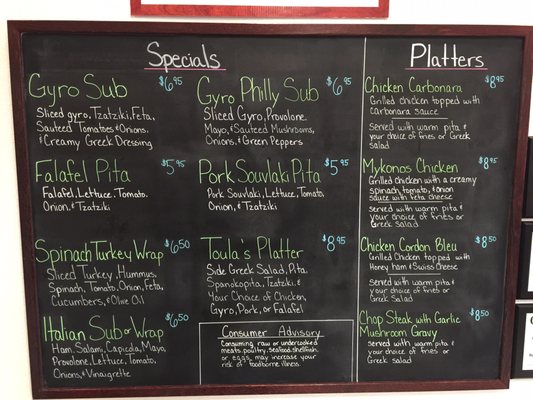 Specials
Gyro Sub $6.95
Sliced gyro, Tzatziki, Feta,
Sauteed Tomatoes & Onions,
& Creamy Greek Dressing
Falafel Pita $5.95
Falafel, Lettuce, Tomato,
Onion, & Tzatziki
Spinach Turkey Wrap $6.50
Sliced Turkey, Hummus,
Spinach, Tomato, Onion, Feta,
Cucumbers, & Olive Oil
Italian Sub or Wrap $6.50
Ham, Salami, Capicola, Mayo,
Provolone, Lettuce, Tomato,
Onions, & Vinaigrette
Gyro Philly Sub $6.95
Sliced Gyro, Provolone,
Mayo, & Sauteed Mushrooms,
Onions, & Green Peppers
Pork Souvlaki Pita $5.95
Pork Souvlaki, Lettuce, Tomato,
Onion, & Tzatziki
Toula's Platter $8.95
Side Greek Salad, Pita,
Spanokopita, Tzatziki, &
Your Choice of Chicken,
Gyro, Pork, or Falafel
Consumer Advisory
Consuming raw or undercooked
meats, poultry, seafood, shellfish,
or eggs, may increase your
risk of foodborne illness.
Platters
Chicken Carbonara $8.95
Grilled chicken topped with
carbonara sauce
Served with warm pita &
your choice of fries or Greek
Salad
Mykonos Chicken $8.95
Grilled chicken with a creamy
spinach, tomato, & onion
sauce with feta cheese
served with warm pita &
your choice of fries or
Greek salad
Chicken Cordon Bleu $8.50
Grilled Chicken topped with
Honey ham & Swiss Cheese
Served with warm pita &
your choice of fries or
Greek Salad
Chop Steak with Garlic $8.50
Mushroom Gravy
served with warm pita &
your choice of fries or
Greek salad